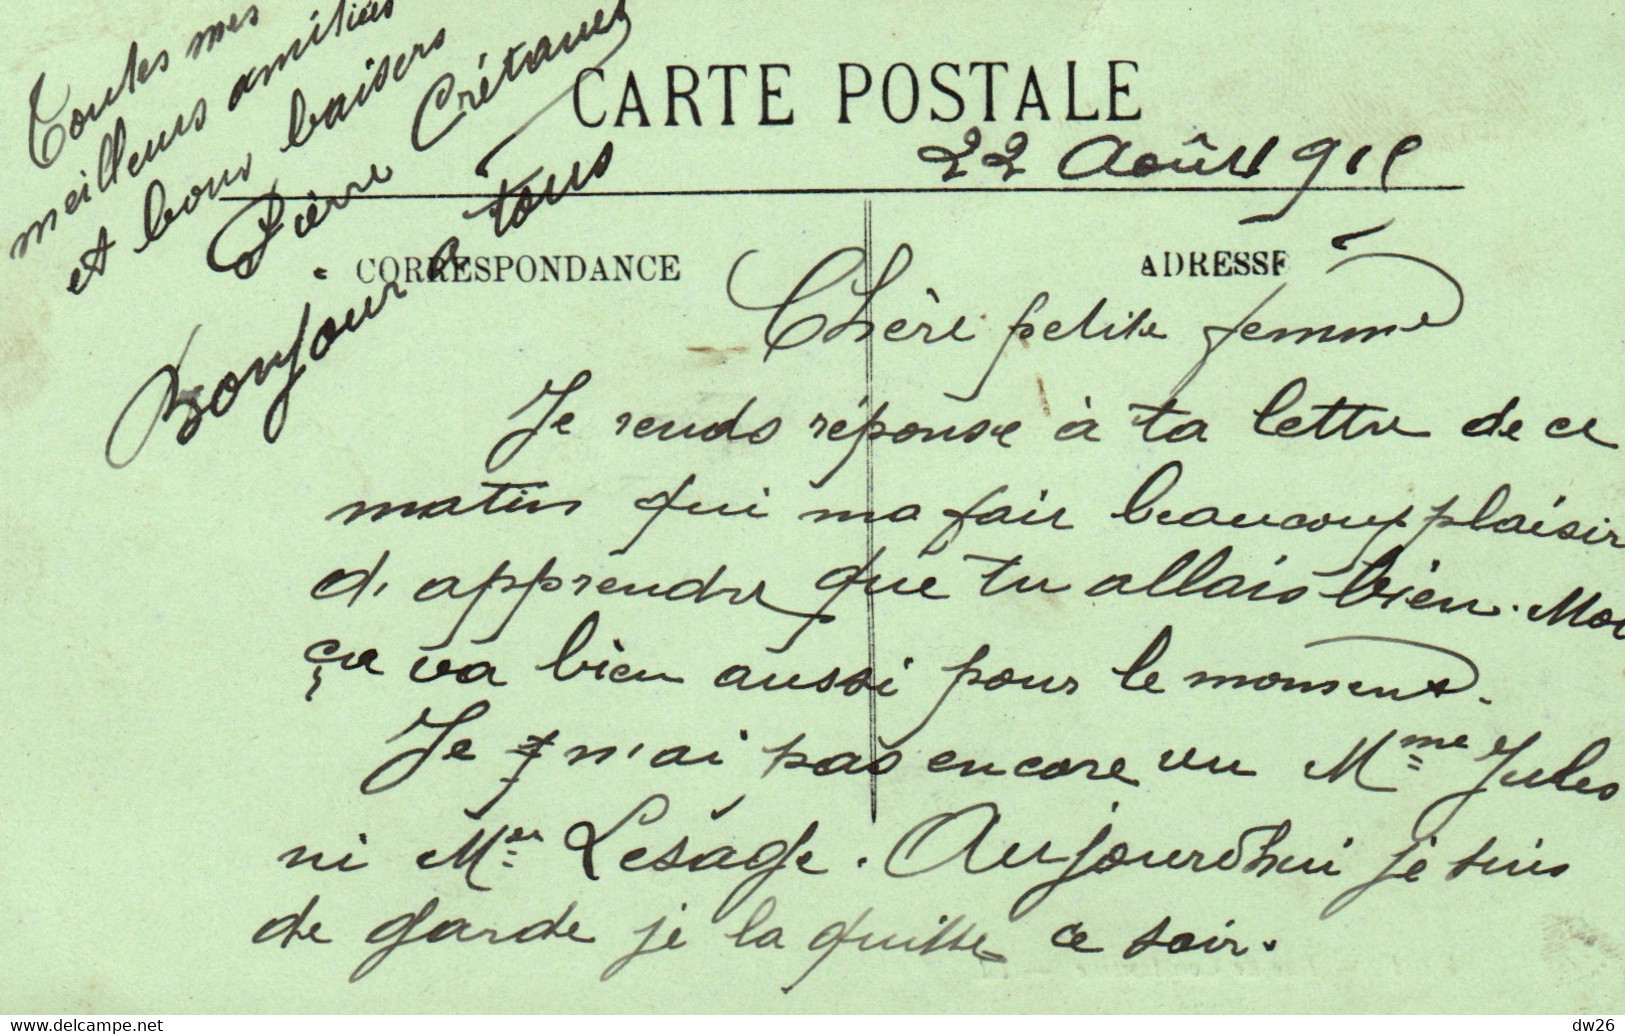 CARTE POSTALE
22 Août 1915
CORRESPONDANCE
ADRESSE
Chère petite femme
Je rends réponse à ta lettre de ce
matin qui ma fair beaucoup plaisir
d'apprendre que tu allais bien. Moi
ça va bien aussi pour le moment.
Je n'ai pas encore vu Mme Jules
ni Mr Lesage. Aujourd'hui je suis
de garde je la quitte ce soir.
Toutes mes
meilleurs amitiés
et bons baisers
Pierre
Bonjour à tous
www.delcampe.net
dw26